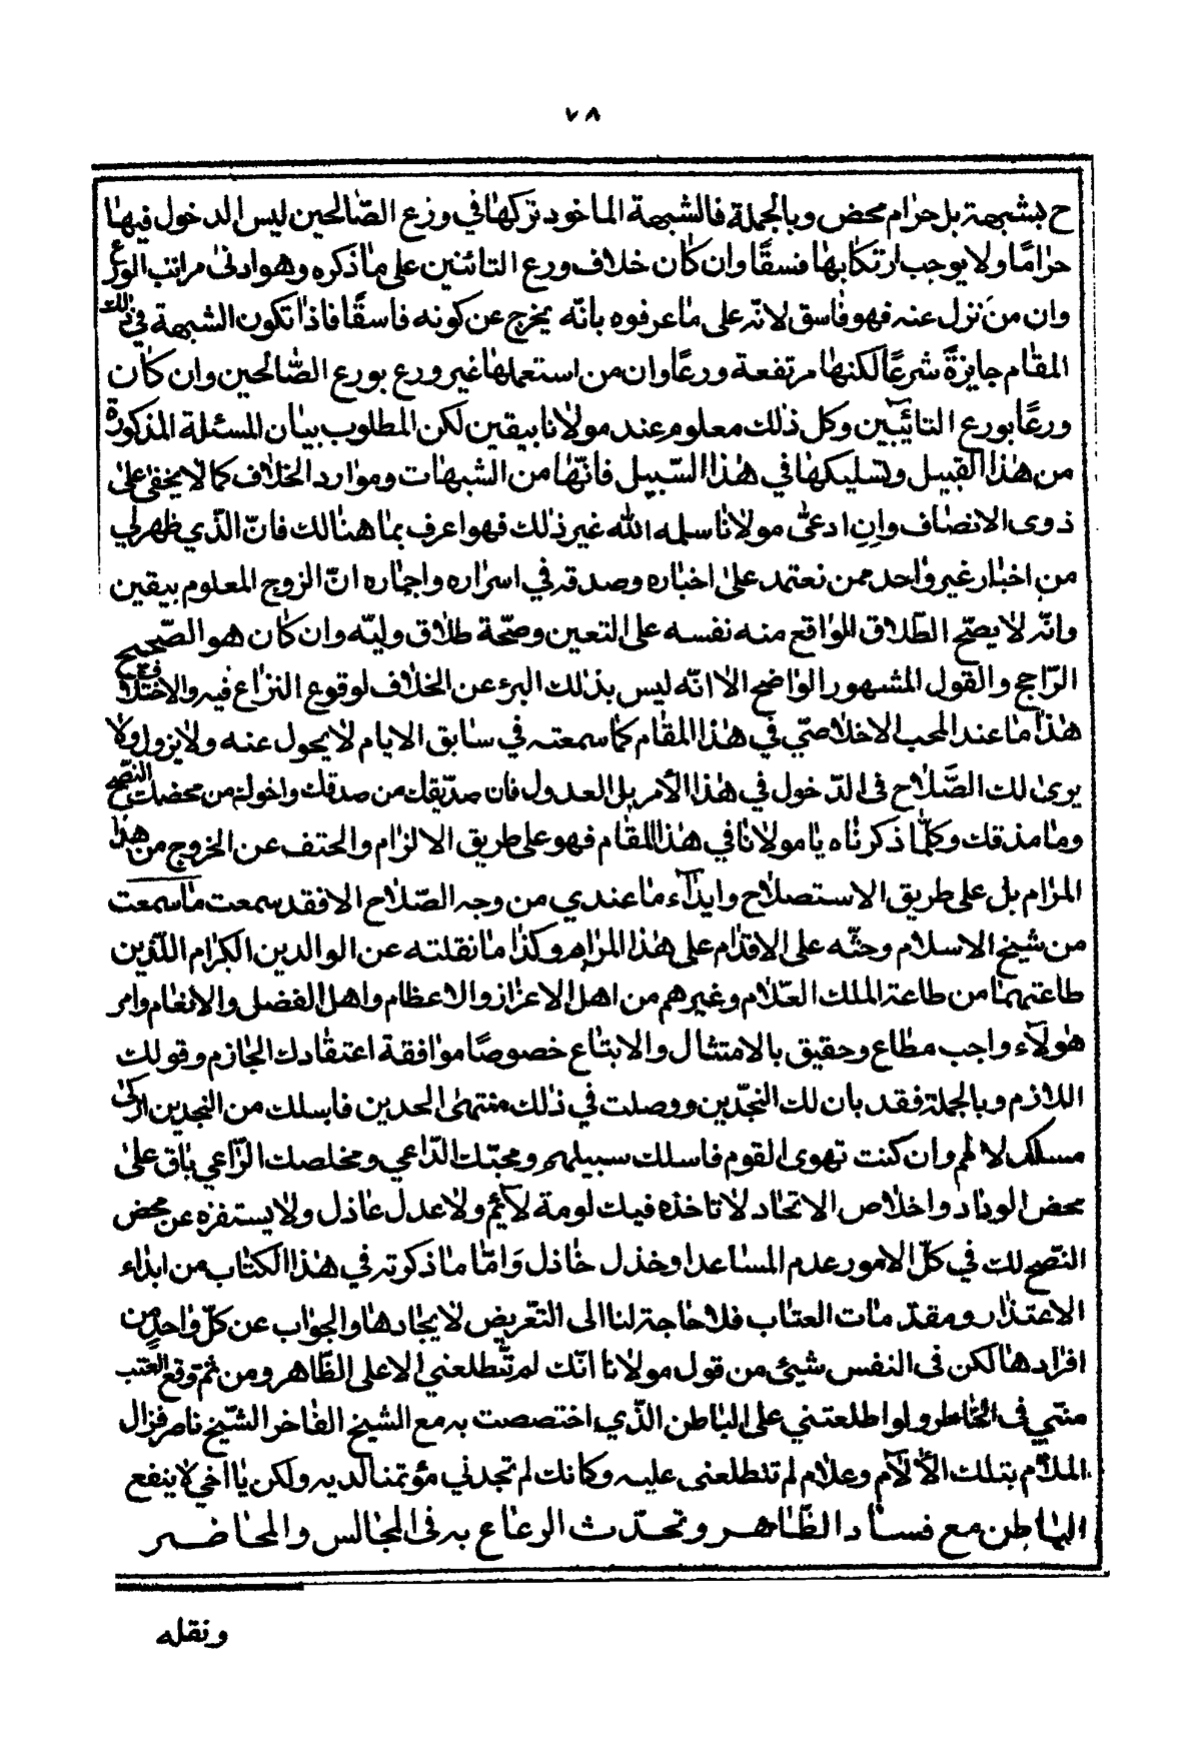 ٧٨
ح بشبهة بل حرٰام محض وبالجملة فالشبهة الماخوذ تركهٰا في ورٰع الصّٰالحين ليس الدخول فيهٰا
حرٰامًا ولا يوجب ارتكٰابهٰا فسقًا وان كٰان خلاف ورع التائبين على مٰا ذكره وهو ادنىٰ مراتب الورع
وان منَ نزل عنه فهو فٰاسق لانّه على مٰا عرفوه بانّه يخرج عن كونه فٰاسقًا فاذًا تكون الشبهة في ذلك
المقٰام جايزةً شرعًا لكنهٰا مرتفعة ورعًا وان من استعملهٰا غير ورع بورع الصّٰالحين وان كٰان
ورعًا بورع التائبين وكل ذٰلك معلوم عند مولٰانا بيقين لكن المطلوب بيٰان المسئلة المذكورة
من هٰذا القبيل وتسليكهٰا في هٰذا السّبيل فانّهٰا من الشبهٰات وموٰارد الخلٰاف كما لا يخفىٰ علىٰ
ذوى الانصٰاف وان ادعىٰ مولٰانٰا سلمه الله غير ذٰلك فهو اعرف بمٰا هنٰالك فانّ الّذي ظهر لي
من اخبٰار غير وٰاحد ممن نعتمد علىٰ اخبٰاره وصدقه في اسرٰاره واجهٰاره انّ الزوج المعلوم بيقين
وانّه لٰا يصحّ الطّلٰاق الوٰاقع منه نفسه على التعين وصحّة طلٰاق وليّه وان كٰان هو الصّحيح
الرّاجح والقول المشهور الوٰاضح الا انّه ليس بذٰلك البرئ عن الخلٰاف لوقوع النزٰاع فيه والاختلٰاف
هذٰا مٰا عند المحب الاخلٰاصّي في هٰذا المقٰام كمٰا سمعته في سٰابق الايام لٰا يحول عنه ولٰا يزول ولٰا
يرىٰ لك الصَّلٰاح في الدّخول في هٰذا الأمر بل العدول فان صدّيقك من صدقك واخوك من محضك النّصح
ومٰا مذقك وكلّمٰا ذكرنٰاه يٰا مولٰانٰا في هٰذا المقٰام فهو على طريق الالزٰام والحتف عن الخروج من هذٰا
المرٰام بل على طريق الاستصلٰاح وابدٰآء مٰا عندي من وجه الصّلٰاح الا فقد سمعت مٰا سمعت
من شيخ الاسلٰام وحثّه على الاقدٰام على هٰذا المرٰام وكذٰا مٰا نقلته عن الوالدين الكرٰام اللّذين
طاعتهمٰا من طاعة الملك العلّٰام وغيرهم من اهل الاعزٰاز والاعظٰام واهل الفضل والانعٰام وامر
هٰولٓاء واجب مطٰاع وحقيق بالامتثٰال والاتبٰاع خصوصًا موٰافقة اعتقٰادك الجٰازم وقولك
اللازم وبالجملة فقد بان لك النجدّين ووصلت في ذٰلك منتهىٰ الحدين فاسلك من النجدين ازكىٰ
مسلك لالهم وان كنت تهوى القوم فاسلك سبيلهم ومحبّك الدّاعي ومخلصك الرّاعي بٰاق علىٰ
محض الودٰاد واخلٰاص الاتحٰاد لٰا تاخذه فيك لومة لٰآئم ولٰا عدل عٰاذل ولا يستفزه عن محض
النّصح لك في كلّ الامور عدم المسٰاعد او خذل خٰاذل وَامّٰا مٰا ذكرته في هٰذا الكتٰاب من ابدٰاء
الاعتذٰار ومقدّمٰات العتٰاب فلٰا حٰاجة لنا الى التعريض لٰايجٰادهٰا والجوٰاب عن كلّ وٰاحد من
افرٰادهٰا لكن في النفس شيئ من قول مولٰانا انّك لم تطلعني الا على الظّاهر ومن ثم وقع العتب
منّي في الخٰاطر ولو اطلعتني على البٰاطن الذّي اختصصت به مع الشيخ الفٰاخر الشّيخ نٰاصر فزٰال
الملٰام بتلك الألٰآم وعلٰام لم تطلعنى عليه وكانك لم تجدني مؤتمنا لديه ولكن يٰا اخي لٰا ينفع
البٰاطن مع فسٰاد الظّٰاهر وتحدّث الرعٰاع به في المجٰالس والمحٰاضر
ونقله